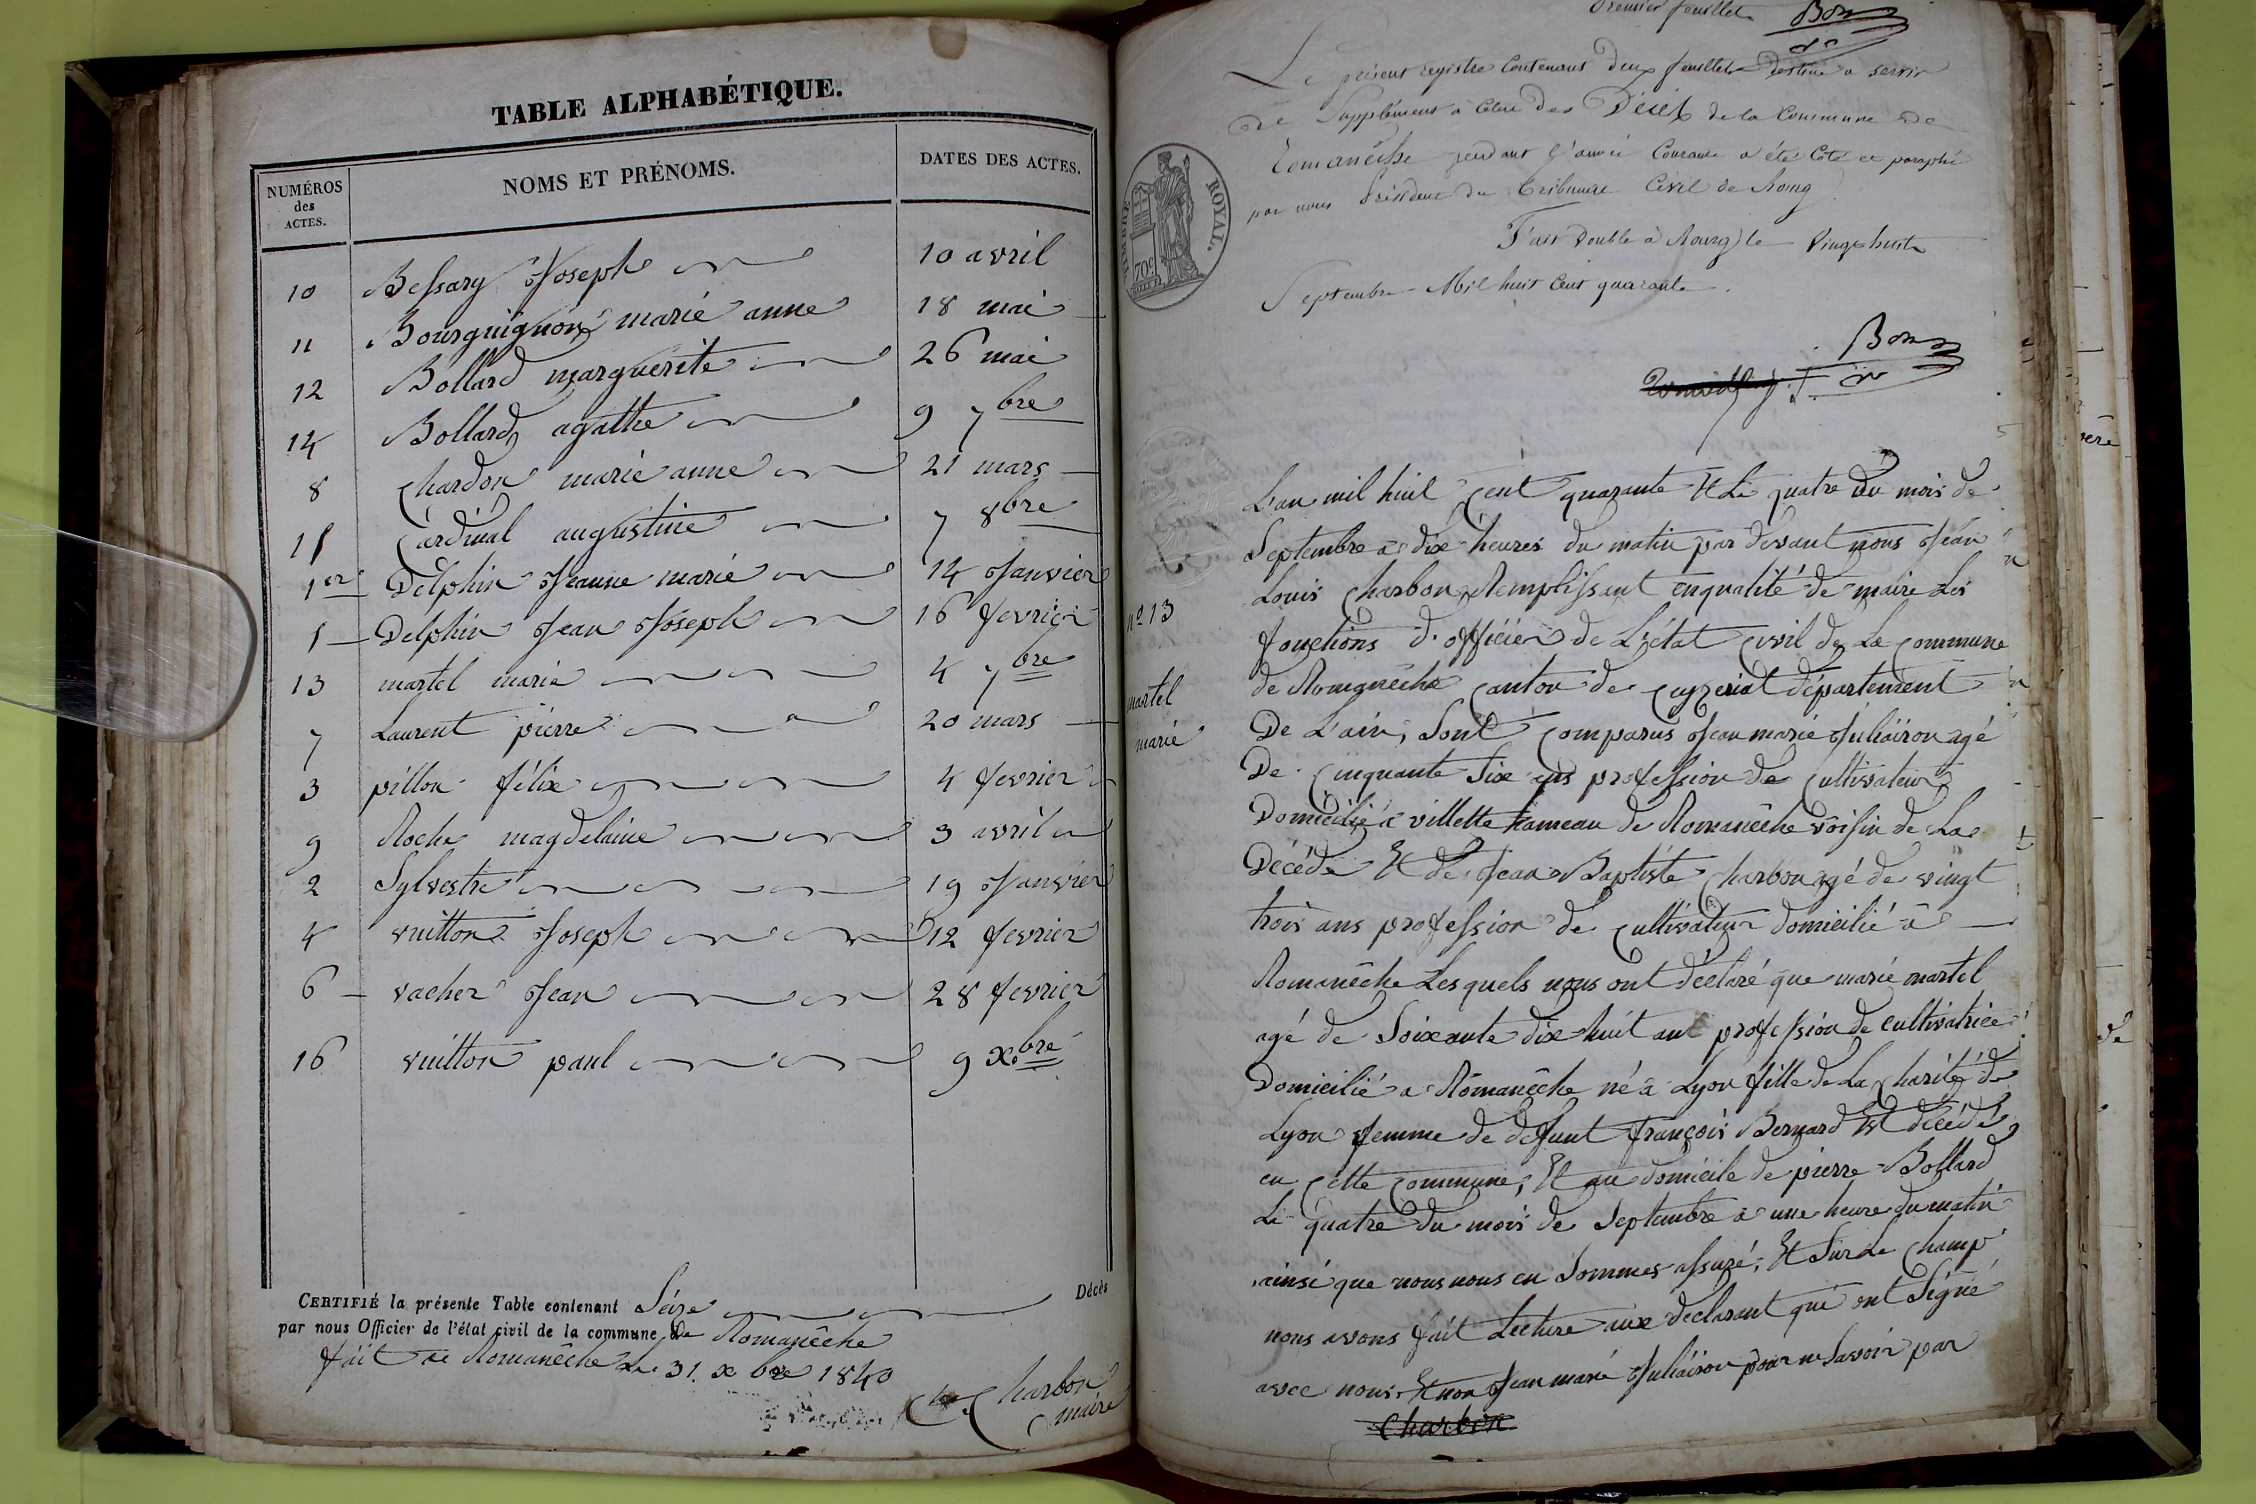 TABLE ALPHABÉTIQUE.
NUMÉROS des ACTES. NOMS ET PRÉNOMS. DATES DES ACTES.
10 Bessary Joseph 10 avril
11 Bourguignon marie anne 18 mai
12 Bollard marguerite 26 mai
14 Bollard agathe 9 7bre
8 Chardon marie anne 21 mars
15 Cardinal augustine 7 8bre
1er Delphin Jeanne marie 14 Janvier
5 Delphin Jean Joseph 16 fevrier
13 martel marie 4 7bre
7 Laurent pierre 20 mars
3 pillon félix 4 fevrier
9 Roche magdelaine 3 avril
2 Sylvestre 19 Janvier
4 vuitton Joseph 12 fevrier
6 vacher Jean 28 fevrier
16 vuitton paul 9 xbre
CERTIFIÉ la présente Table contenant Seize Décès
par nous Officier de l'état civil de la commune de Romanêche
fait a Romanêche Le 31 xbre 1840
Charbon
maire
Premier feuillet Bon
Le présent registre Contenant deux feuillets destiné a servir
de Supplément à Celui des Décès de la Commune de
Romanêche pendant l'année Courante a été Coté et paraphé
par nous Président du Tribunal Civil de Bourg
Fait Double à Bourg le Vingt huit
Septembre Mil huit Cent quarante.
Bon
TIMBRE ROYAL.
70c
n° 13
martel
marie
L'an mil huit Cent quarante Et Le quatre du mois de
Septembre a dix heures du matin par devant nous Jean
Louis Charbon Remplissant enqualité de maire Les
fonctions d'officier de L'état Civil de La Commune
de Romanêche Canton de Ceyzeriat département
De L'ain, Sont Comparus Jean marie Juliairon agé
De Cinquante Six ans profession de Cultivateur
Domicilié a villette hameau de Romanêche voisin de La
Décédé Et de Jean Baptiste Charbon agé de vingt
trois ans profession de Cultivateur domicilié à
Romanêche Lesquels nous ont déclaré que marie martel
agé de Soixante dix huit ans profession de cultivatrice
Domicilié a Romanêche né à Lyon fille de La Charité de
Lyon femme de defunt françois Bernard Est décédé
en Cette Commune, Et au domicile de pierre Bollard
Le quatre du mois de Septembre à une heure du matin
ainsi que nous nous en Sommes assuré, Et Sur Le Champ
nous avons fait Lecture aux declarant qui ont Signé
avec nous Et non Jean marie Juliairon pour ne Savoir par
Charbon